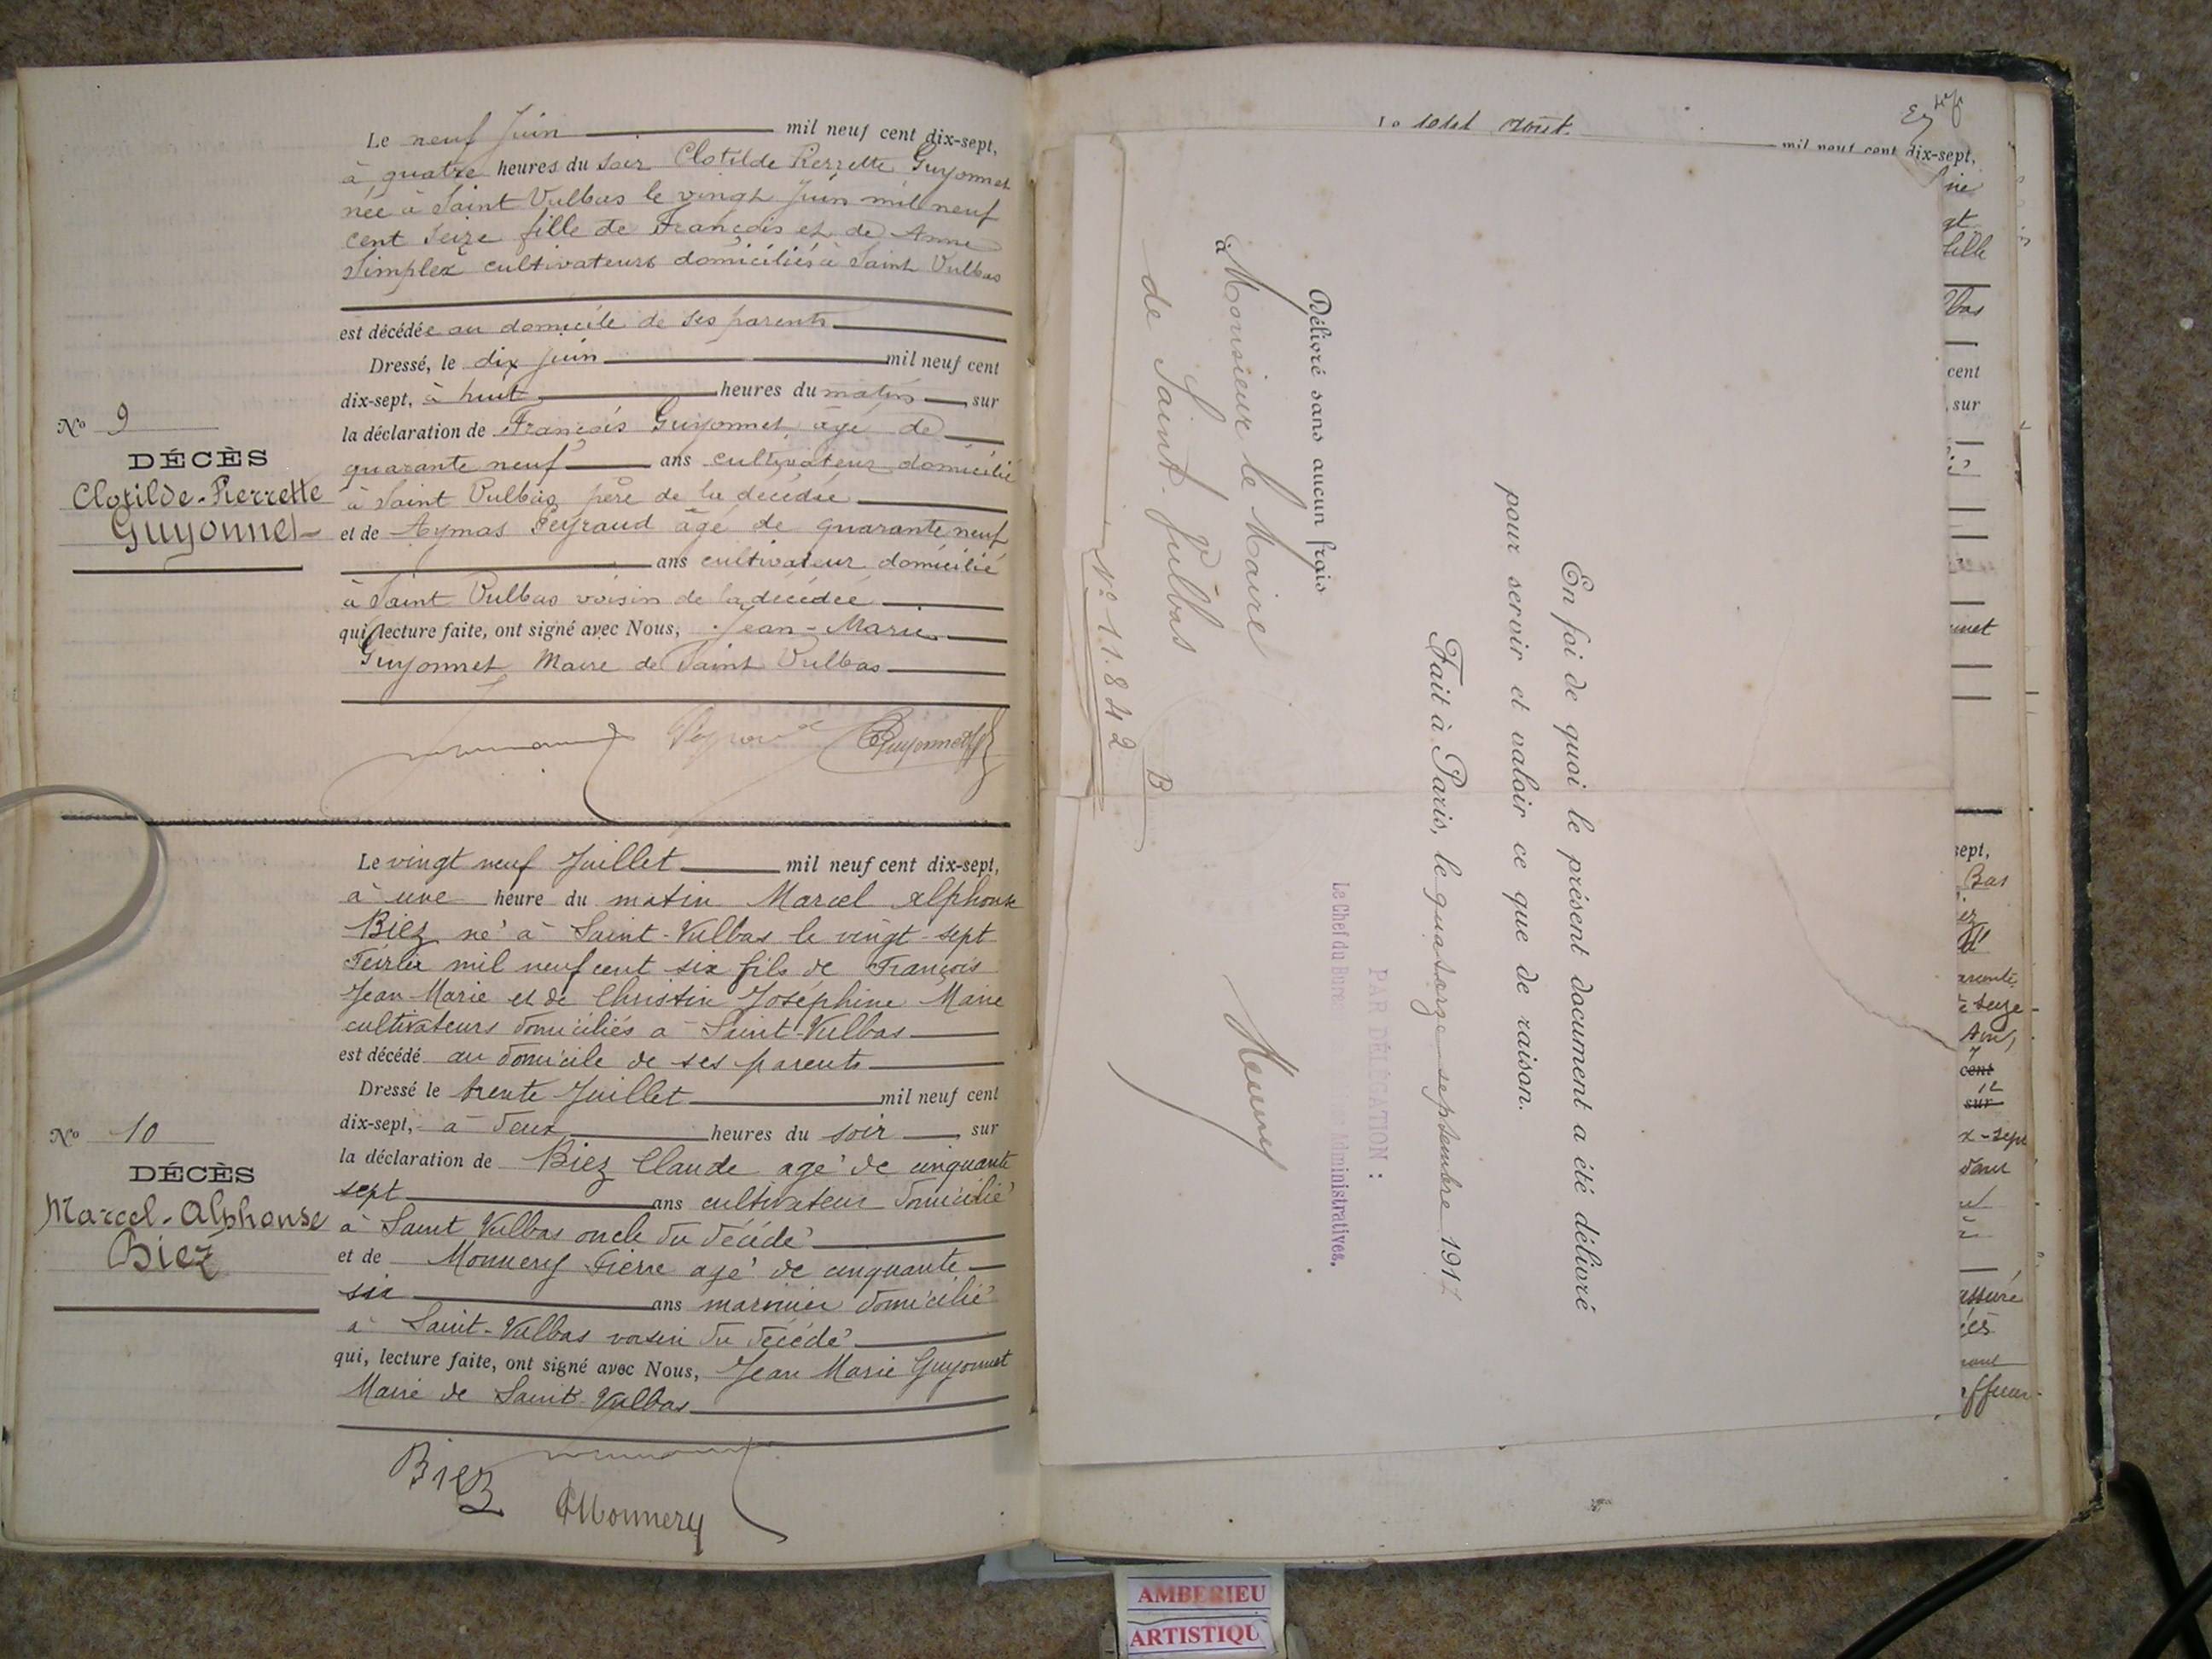 Le neuf Juin mil neuf cent dix-sept,
à quatre heures du soir Clotilde Pierrette Guyonnet
née à Saint Vulbas le vingt Juin mil neuf
cent seize fille de François et de Anne
Simplex cultivateurs domiciliés à Saint Vulbas
est décédée au domicile de ses parents
Dressé, le dix juin mil neuf cent
dix-sept, à huit heures du matin, sur
la déclaration de François Guyonnet, âgé de
quarante neuf ans cultivateur domicilié
à Saint Vulbas père de la décédée
et de Aymas Peyraud âgé de quarante neuf
ans cultivateur domicilié
à Saint Vulbas voisin de la décédée
qui, lecture faite, ont signé avec Nous, Jean-Marie
Guyonnet Maire de Saint Vulbas
Peyraud Guyonnet
No 9
DÉCÈS
Clotilde-Pierrette
Guyonnet
Le vingt neuf Juillet mil neuf cent dix-sept,
à une heure du matin Marcel Alphonse
Biez né à Saint-Vulbas le vingt-sept
Féirlier mil neuf cent six fils de François
Jean Marie et de Christin Joséphine Marie
cultivateurs domiciliés à Saint-Vulbas
est décédé au domicile de ses parents
Dressé le trente Juillet mil neuf cent
dix-sept, à deux heures du soir, sur
la déclaration de Biez Claude agé de cinquante
sept ans cultivateur domicilié
à Saint Vulbas oncle du décédé
et de Monnery Pierre agé de cinquante
six ans marinier domicilié
à Saint-Vulbas voisin du décédé
qui, lecture faite, ont signé avec Nous, Jean Marie Guyonnet
Maire de Saint-Vulbas
Biez
Monnery
No 10
DÉCÈS
Marcel-Alphonse
Biez
Août mil neuf cent dix-sept,
En foi de quoi le présent document a été délivré
pour servir et valoir ce que de raison.
Fait à Paris, le quatorze septembre 1917
PAR DÉLÉGATION :
Le Chef du Bureau Administratives.
Délivré sans aucun frais
à Monsieur le Maire
de Saint-Vulbas
No 11.842 B
cent
, sur
sept,
cent
sur
AMBERIEU
ARTISTIQU